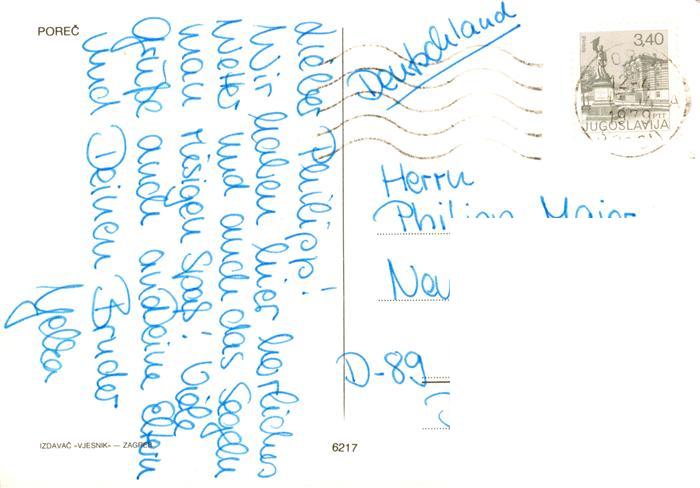 POREČ
Lieber Philipp!
Wir haben hier herrliches
Wetter und auch das Segeln
macht riesigen Spaß! Viele
Grüße auch an Deine Eltern
und Deinen Bruder
Deutschland
3,40
1979
PTT
JUGOSLAVIJA
Herrn
Philipp Maier
Neu
D-89
IZDAVAČ »VJESNIK« — ZAGREB
6217